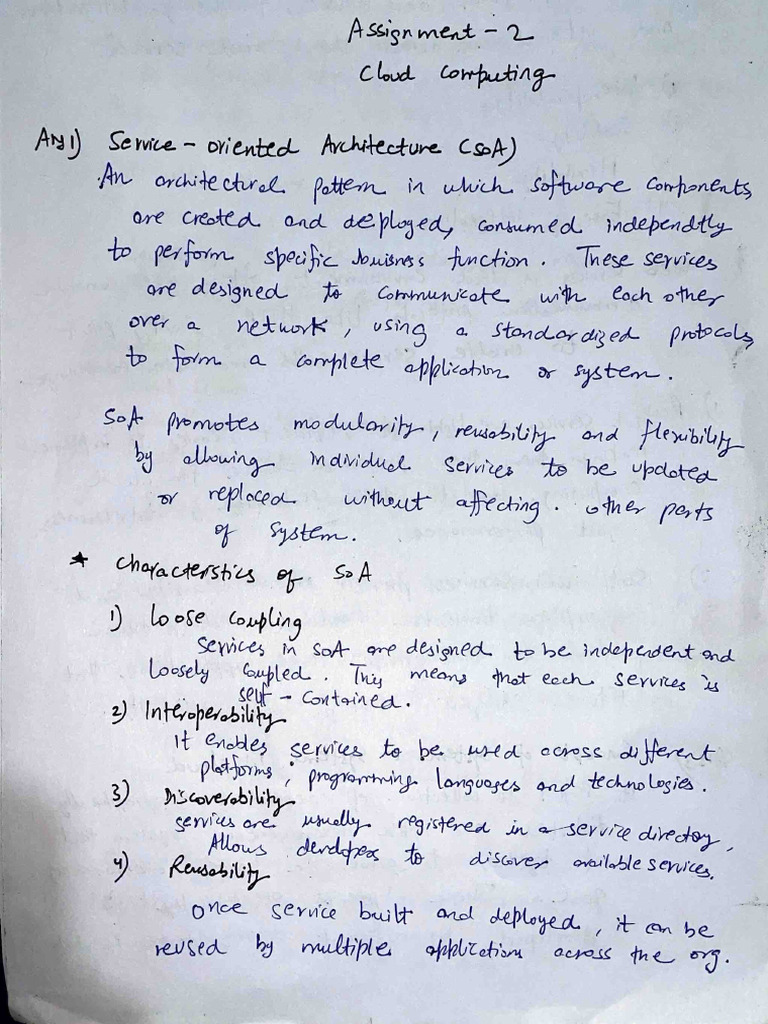 Assignment - 2
Cloud Computing
Ans 1) Service - oriented Architecture (SOA)
An architectural pattern in which software components
are created and deployed, consumed independtly
to perform specific buisness function. These services
are designed to communicate with each other
over a network, using a standardized protocols,
to form a complete application or system.
SOA promotes modularity, reusability and flexibility
by allowing individual services to be updated
or replaced without affecting. other parts
of system.
* Characterstics of SOA
1) Loose Coupling
Services in SOA are designed to be independent and
loosely coupled. This means that each services is
self - contained.
2) Interoperability
It enables services to be used across different
platforms, programming languages and technologies.
3) Discoverability
services are usually registered in a service directory,
Allows developers to discover available services.
4) Reusability
Once service built and deployed, it can be
reused by multiple applications across the org.